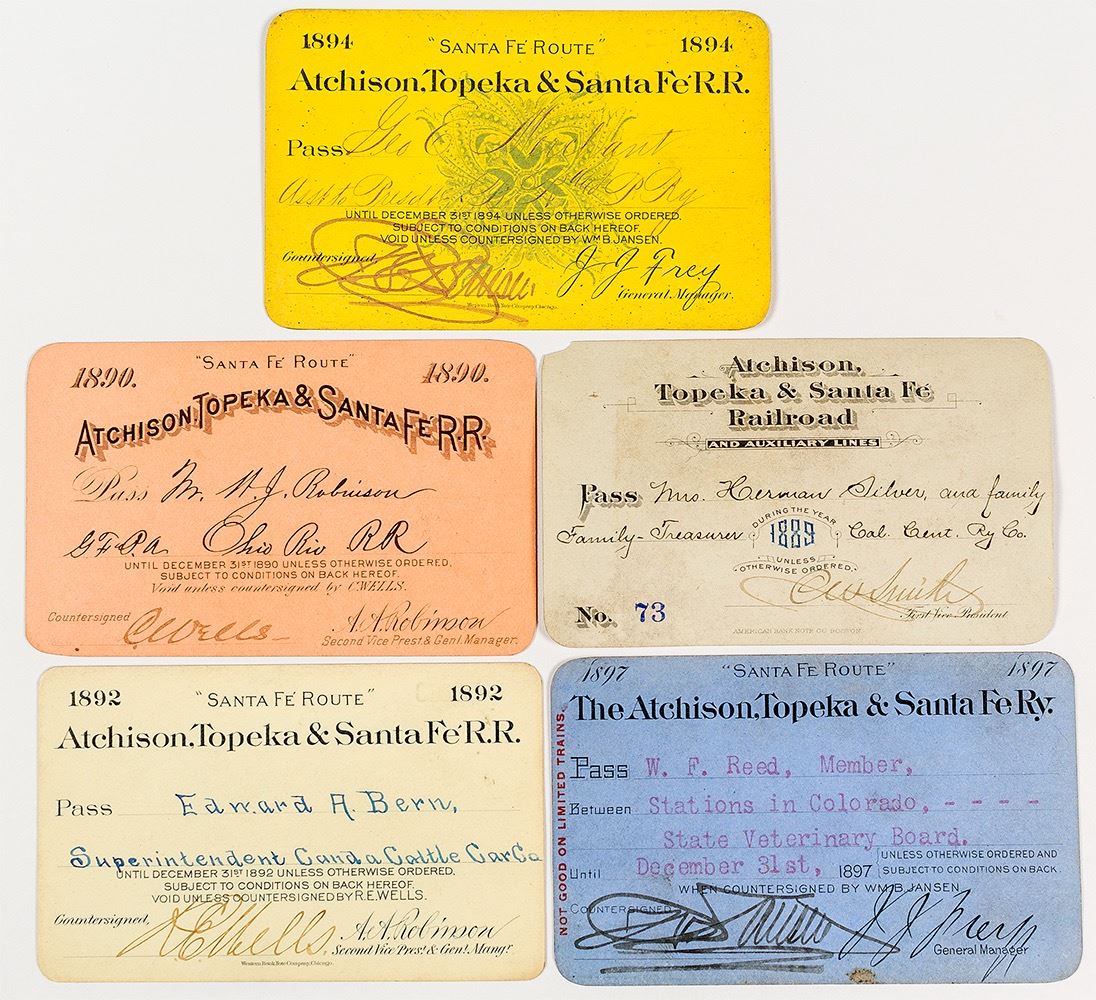 1894 "SANTA FÉ ROUTE" 1894
Atchison, Topeka & Santa Fé R.R.
Pass Geo E Merchant
Asst to Presdt P. Ry
UNTIL DECEMBER 31ST 1894 UNLESS OTHERWISE ORDERED.
SUBJECT TO CONDITIONS ON BACK HEREOF.
VOID UNLESS COUNTERSIGNED BY WM B. JANSEN.
Countersigned,
J. J. Frey
General Manager.
Western Bank Note Company, Chicago.
1890. "SANTA FÉ ROUTE" 1890.
ATCHISON, TOPEKA & SANTA FÉ R.R.
Pass Mr. W. J. Robinson
G.F.P.A. Ohio Riv RR
UNTIL DECEMBER 31ST 1890 UNLESS OTHERWISE ORDERED,
SUBJECT TO CONDITIONS ON BACK HEREOF.
Void unless countersigned by C. WELLS.
Countersigned C Wells
A. A. Robinson
Second Vice Prest. & Genl. Manager.
Atchison,
Topeka & Santa Fé
Railroad
AND AUXILIARY LINES
Pass Mrs. Herman Silver, and family
DURING THE YEAR
Family-Treasurer 1889 Cal. Cent. Ry Co.
UNLESS
OTHERWISE ORDERED.
C W Smith
First Vice President
No. 73
AMERICAN BANK NOTE CO. BOSTON.
1892 "SANTA FÉ ROUTE" 1892
Atchison, Topeka & Santa Fé R.R.
Pass Edward A. Bern,
Superintendent Canda Cattle Car Co
UNTIL DECEMBER 31ST 1892 UNLESS OTHERWISE ORDERED.
SUBJECT TO CONDITIONS ON BACK HEREOF.
VOID UNLESS COUNTERSIGNED BY R.E. WELLS.
Countersigned,
R E Wells
A. A. Robinson
Second Vice Pres.t & Gen.l Mang.r
Western Bank Note Company, Chicago.
1897 "SANTA FE ROUTE" 1897
The Atchison, Topeka & Santa Fe Ry.
NOT GOOD ON LIMITED TRAINS.
Pass W. F. Reed, Member,
Between Stations in Colorado, - - - - -
State Veterinary Board.
Until December 31st, 1897 UNLESS OTHERWISE ORDERED AND
SUBJECT TO CONDITIONS ON BACK.
WHEN COUNTERSIGNED BY WM B. JANSEN
COUNTERSIGNED
J. J. Frey
General Manager